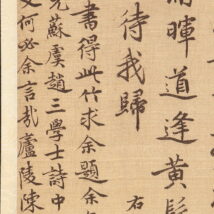 暉道逢黃髮
待我歸
右
書得此竹求余題余
元蘇虞趙三學士詩中
何必余言哉廬陵陳